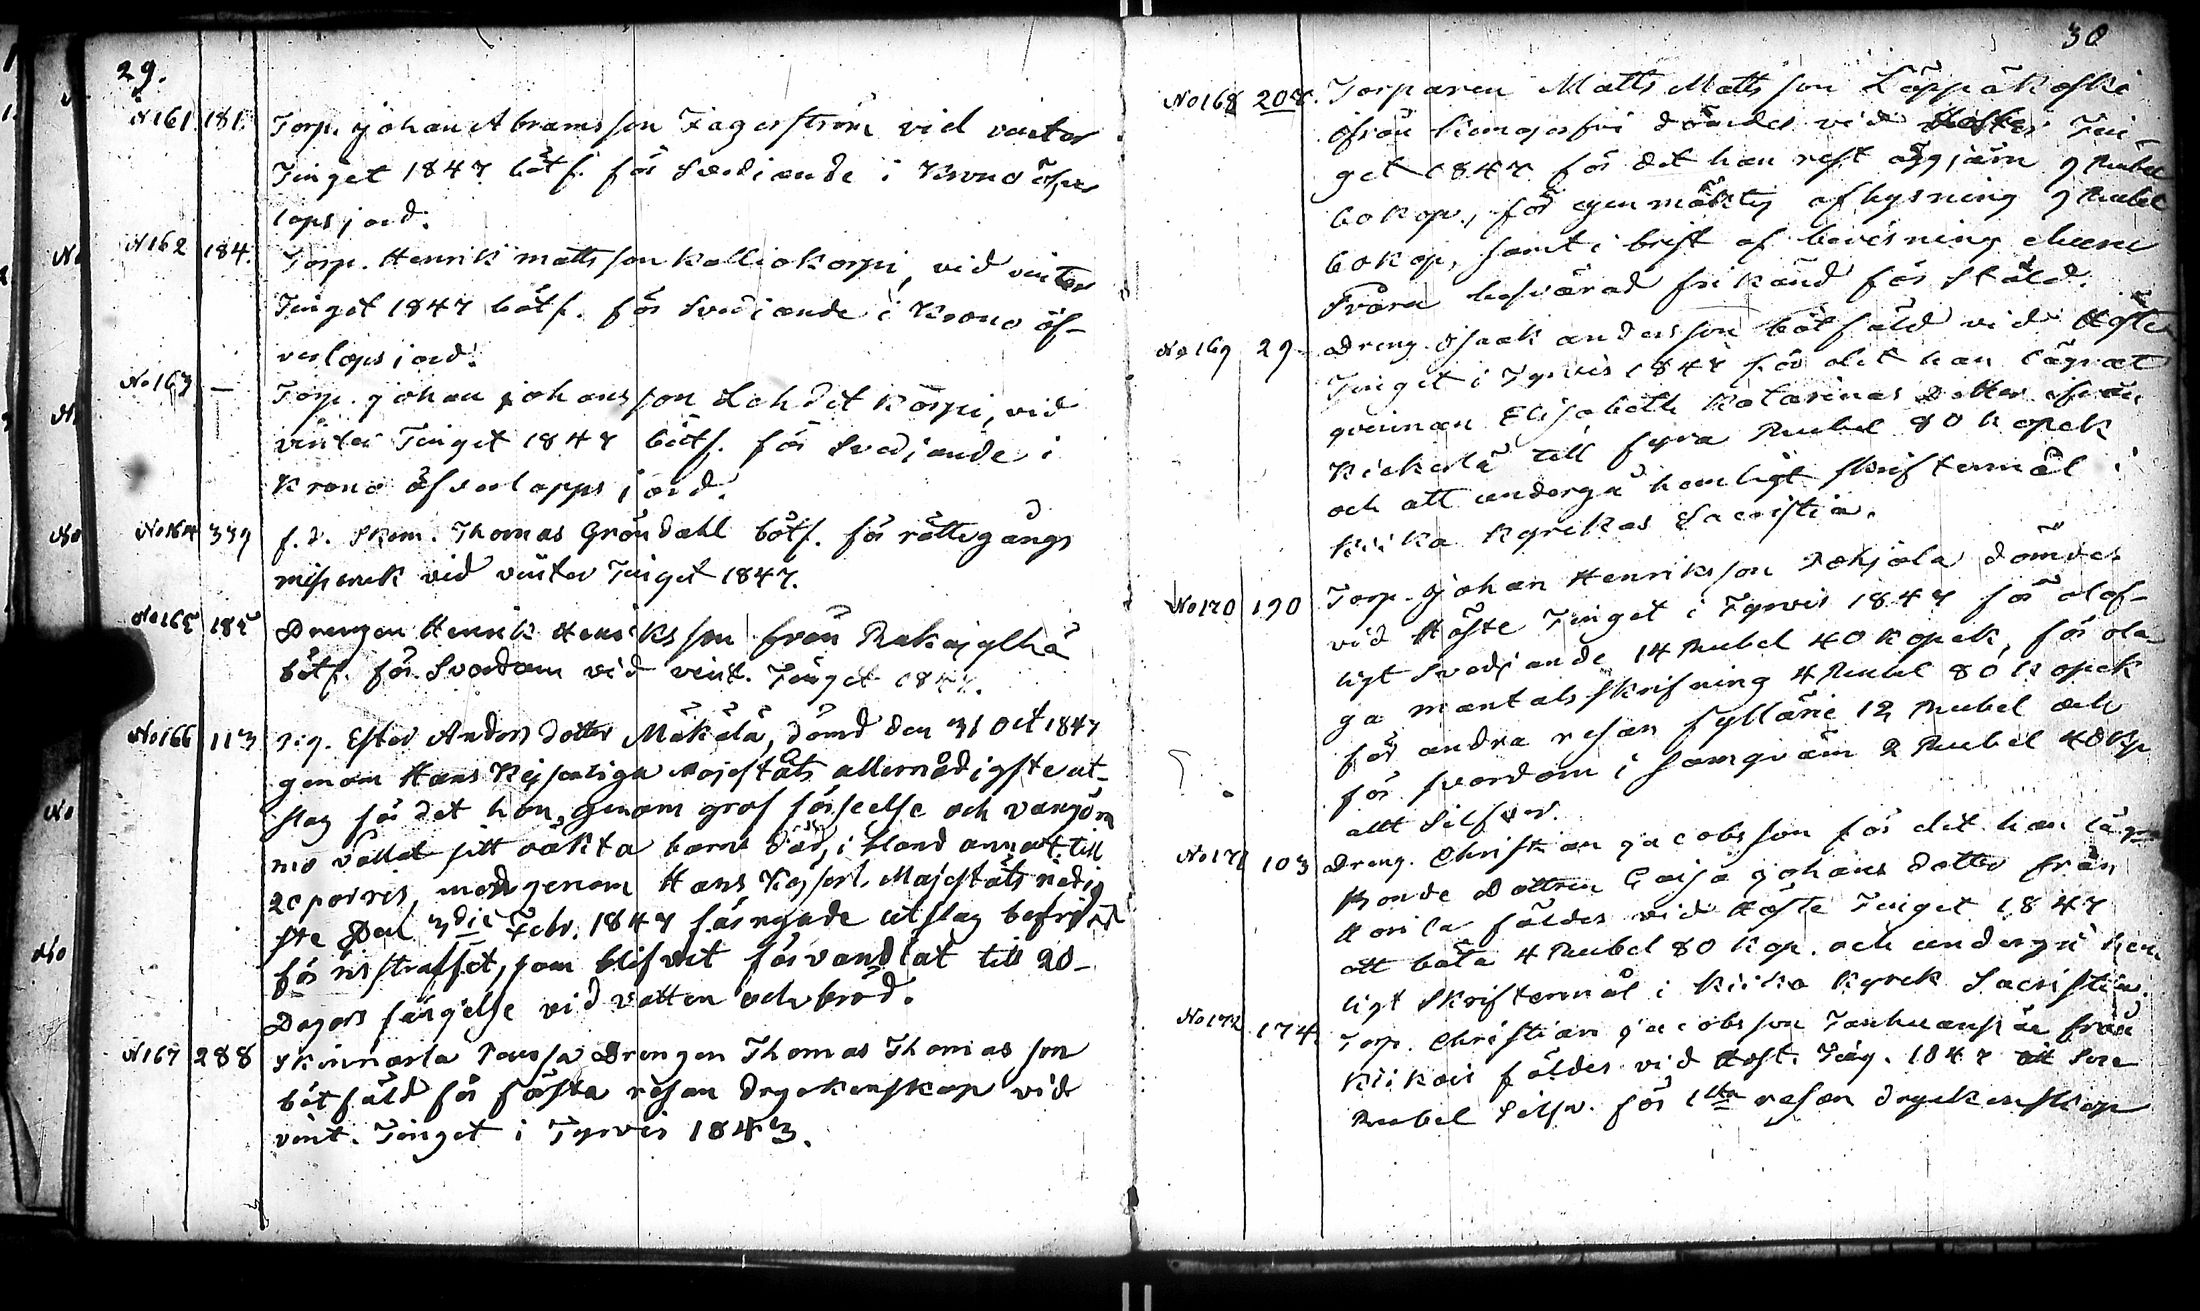 29.
No161 181. Torp. Johan Abramsson Fagerström vid vinter
Tinget 1847 bötf. för Svediande i Krono öfver
lopsjord.
No162 184. Torp. Henrik mattsson Kalliokorpi, vid vinter
Tinget 1847 bötf. för Svediande i Krono öf-
verlopsjord.
No163 — Torp. Johan Johansson Lehdet korpi, vid
vinter Tinget 1847 bötf. för Svediande i
Krono öfverloppsjord.
No164 339 f.d. Skom. Thomas Gröndahl bötf. för rättegångs
missbruk vid vinter Tinget 1847.
No165 185 Drengen Henrik Henriksson från
bötf. för Svordom vid vint. Tinget 1847.
No166 113 Pig. Ester Anders dotter Mäkälä, dömd den 31 Oct 1847
genom Hans Kejserliga Majestäts allernådigste ut-
slag för det hon, genom grof förseelse och vangöm
mo vållat sitt oäkta barns död, i bland annat till
20 par ris, men genom Hans Kejserl. Majestäts nådig
ste Den 3die Febr. 1847 förnyade utslag befriad
för risstraffet, som blifvit förvandlat till 20-
Dagars fängelse vid vatten och bröd.
No167 288 Skinnarla Drengen Thomas Thomasson
bötfäld för första resan dryckenskap vid
vint. Tinget i Tyrvis 1843.
30
No168 208. Torparen Matts Mattsson Läppäkoski
ifrån dömdes vid Höste Tin-
get 1847 för det han rest 9 Rubel
60 kop., för egenmäktig afhysning 9 Rubel
60 kop, samt i brist af bevisning
Svåra besvärad frikänd för Stöld.
No169 29 Dreng. Isaak andersson bötfäld vid Höste
Tinget i Tyrvis 1847 för det han lägrat
qvinnan Elisabeth Katarinas Dotter ifrån
till fyra Rubel 80 kopek
och att undergå hemligt skriftermål i
Kiika Kyrkas Sacristia.
No170 190 Torp. Johan Henriksson Pohjala dömdes
vid Höste Tinget i Tyrvis 1847 för olof-
ligt Svedjande 14 Rubel 40 kopek, för ola
ga mantalsskrifning 4 Rubel 80 kopek
för andra resan fylleri 12 Rubel och
för svordom i Samqväm 2 Rubel 40 kop
allt Silfver.
No171 103 Dreng. Christian Jacobsson för det han lägrat
Bonde Dottren Caisa Johans dotter från
fäldes vid Höste Tinget 1847
att böta 4 Rubel 80 kop. och undergå hem
ligt Skriftermål i Kiika Kyrk Sacristia.
No172 174. Torp. Christian Jacobsson Tanhuanpää från
Kiikois fäldes vid Höst. Ting. 1847
Rubel Silfv. för 1sta resan dryckenskap